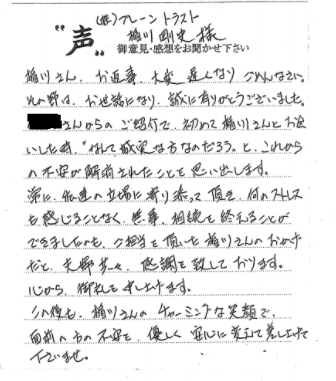 (株)ブレーントラスト
稲川 剛史 様
"声"
御意見・感想をお聞かせ下さい
稲川さん、お返事、大変 遅くなり ごめんなさい。
この際は、お世話になり、誠に有りがとうございました。
さんからの ご紹介で、初めて 稲川さんと お会
いした時、"なんて 誠実な方なのだろう。と、これから
の不安が解消されたことを思い出します。
常に、私達の立場に寄り添って頂き、何のストレス
も感じることなく、無事、相続も終えることが
できましたのも、ご担当を頂いた 稲川さんのおかげ
だと、夫婦共々、感謝を致しております。
心から、御礼を申し上げます。
この後も、稲川さんの チャーミングな笑顔で、
目前の方の不安を、優しく 安心に変えて差し上げて
下さいませ。